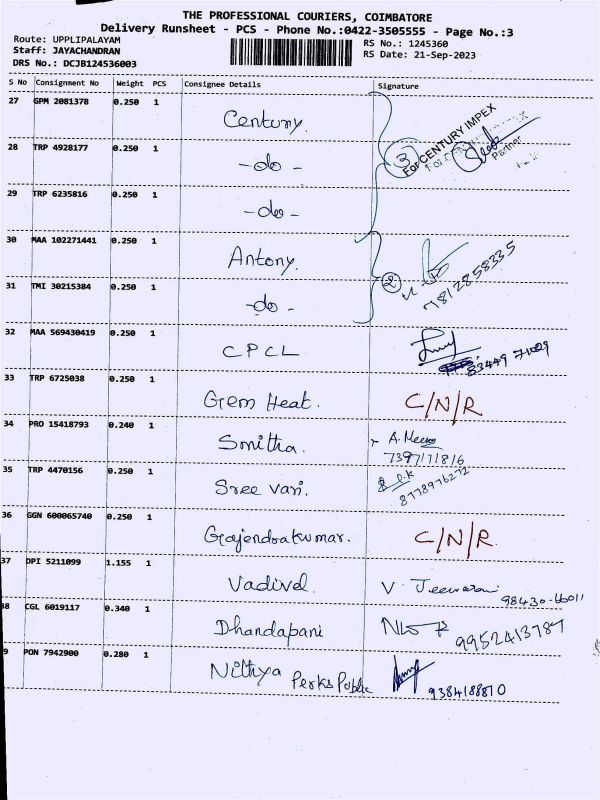 THE PROFESSIONAL COURIERS, COIMBATORE
Delivery Runsheet - PCS - Phone No.:0422-3505555 - Page No.:3
Route: UPPLIPALAYAM
Staff: JAYACHANDRAN
DRS No.: DCJB124536003
RS No.: 1245360
RS Date: 21-Sep-2023
S No Consignment No Weight PCS Consignee Details Signature
27 GPM 2081378 0.250 1 Century.
3 For CENTURY IMPEX
Partner
28 TRP 4928177 0.250 1 -do-
29 TRP 6235816 0.250 1 -do-
30 MAA 102271441 0.250 1 Antony.
2 7812858335
31 TMI 30215384 0.250 1 -do-
32 MAA 569430419 0.250 1 CPCL
83449 71029
33 TRP 6725038 0.250 1 Grem Heat. C/N/R
34 PRO 15418793 0.240 1 Smitha. A. Meena
7397171816
35 TRP 4470156 0.250 1 Sree vari.
8778976272
36 GGN 600065740 0.250 1 Gajendrakumar. C/N/R
37 DPI 5211099 1.155 1 Vadivel. V. Jeevaran
98430-66011
38 CGL 6019117 0.340 1 Dhandapani
9952413787
9 PON 7942900 0.280 1 Nithya Perks Public
9384188810